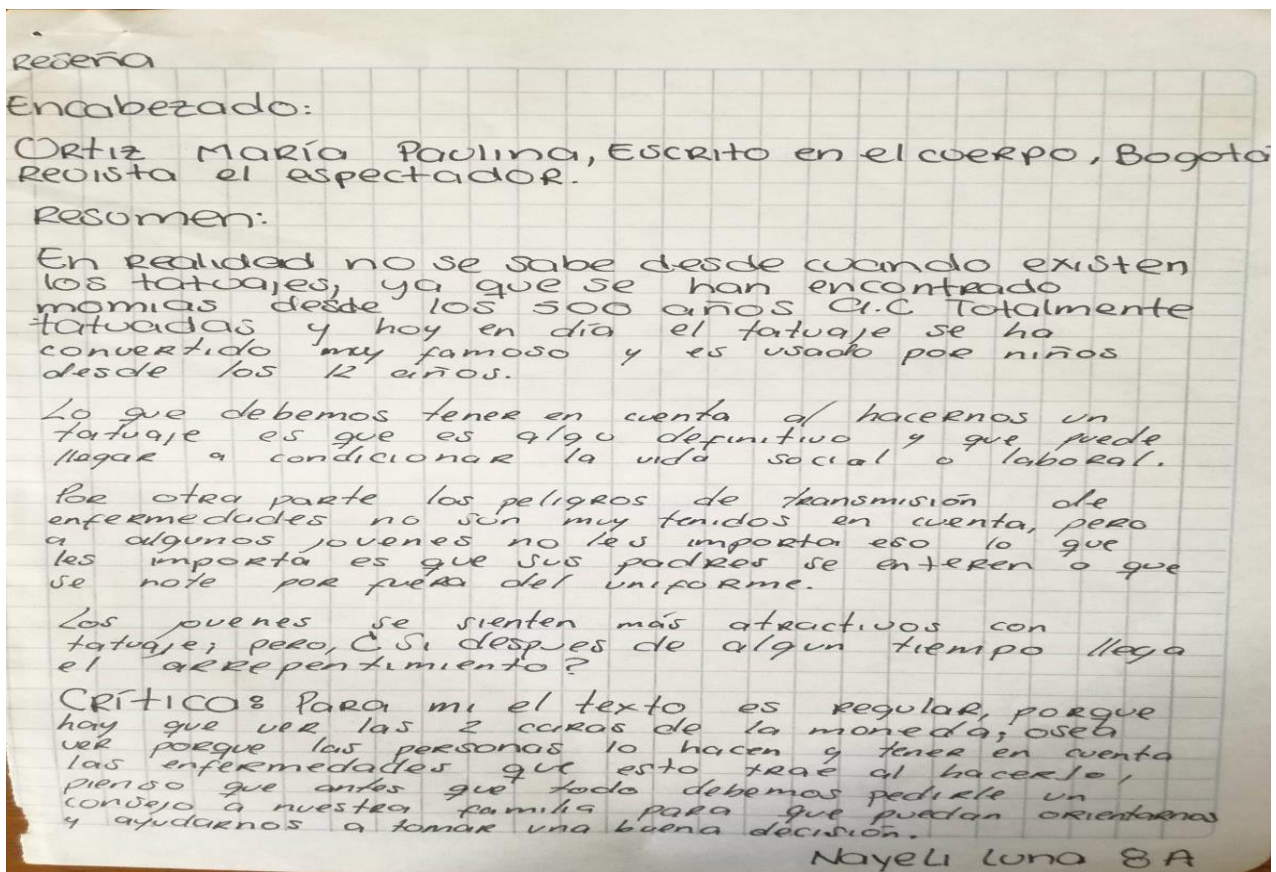 Reseña
Encabezado:
Ortiz María Paulina, Escrito en el cuerpo, Bogotá
Revista el espectador.
Resumen:
En Realidad no se sabe desde cuando existen
los tatuajes, ya que se han encontrado
momias desde los 500 años a.C Totalmente
tatuadas y hoy en día el tatuaje se ha
convertido muy famoso y es usado por niños
desde los 12 años.
Lo que debemos tener en cuenta al hacernos un
tatuaje es que es algo definitivo y que puede
llagar a condicionar la vida social o laboral.
Por otra parte los peligros de transmisión de
enfermedades no son muy tenidos en cuenta, pero
a algunos jovenes no les importa eso lo que
les importa es que sus padres se enteren o que
se note por fuera del uniforme.
Los jovenes se sienten más atractivos con
tatuaje; pero, ¿Si despues de algun tiempo llega
el arrepentimiento?
Crítica: Para mi el texto es regular, porque
hay que ver las 2 caras de la moneda; osea
ver porque las personas lo hacen y tener en cuenta
las enfermedades que esto trae al hacerlo,
pienso que antes que todo debemos pedirle un
consejo a nuestra familia para que puedan orientarnos
y ayudarnos a tomar una buena decisión.
Nayeli Luna 8A